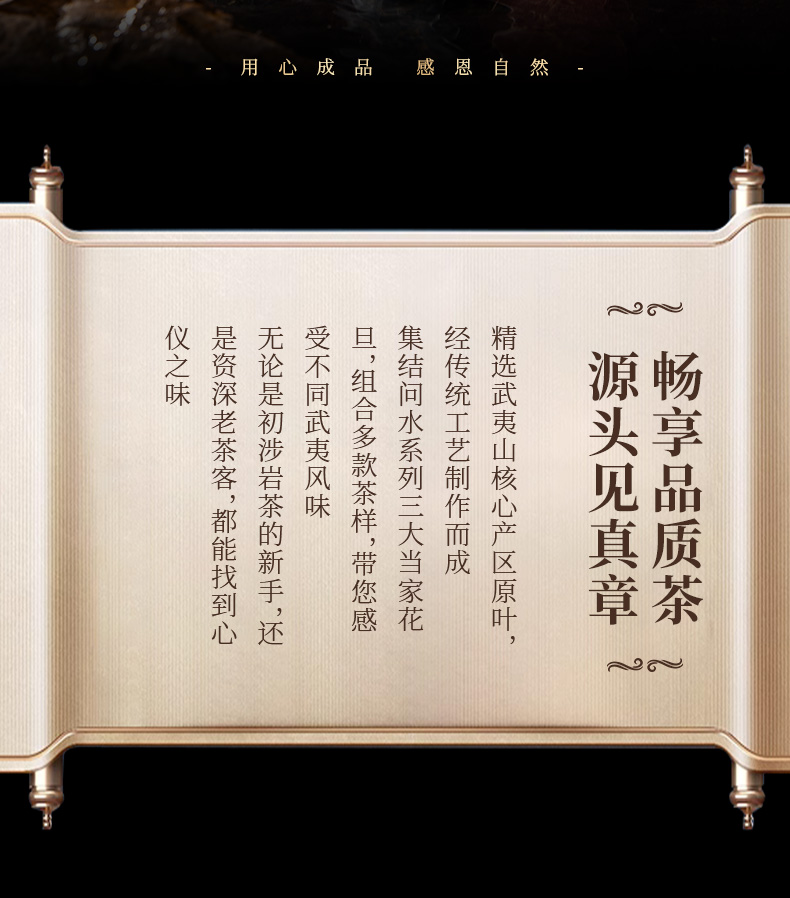 - 用心成品 感恩自然 -
畅享品质茶
源头见真章
精选武夷山核心产区原叶，
经传统工艺制作而成
集结问水系列三大当家花
旦，组合多款茶样，带您感
受不同武夷风味
无论是初涉岩茶的新手，还
是资深老茶客，都能找到心
仪之味